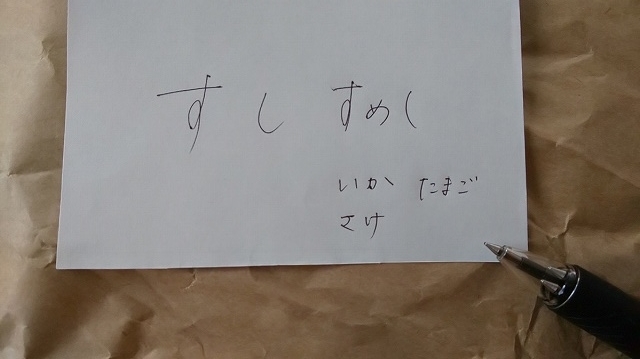 すし すめし
いか たまご
さけ